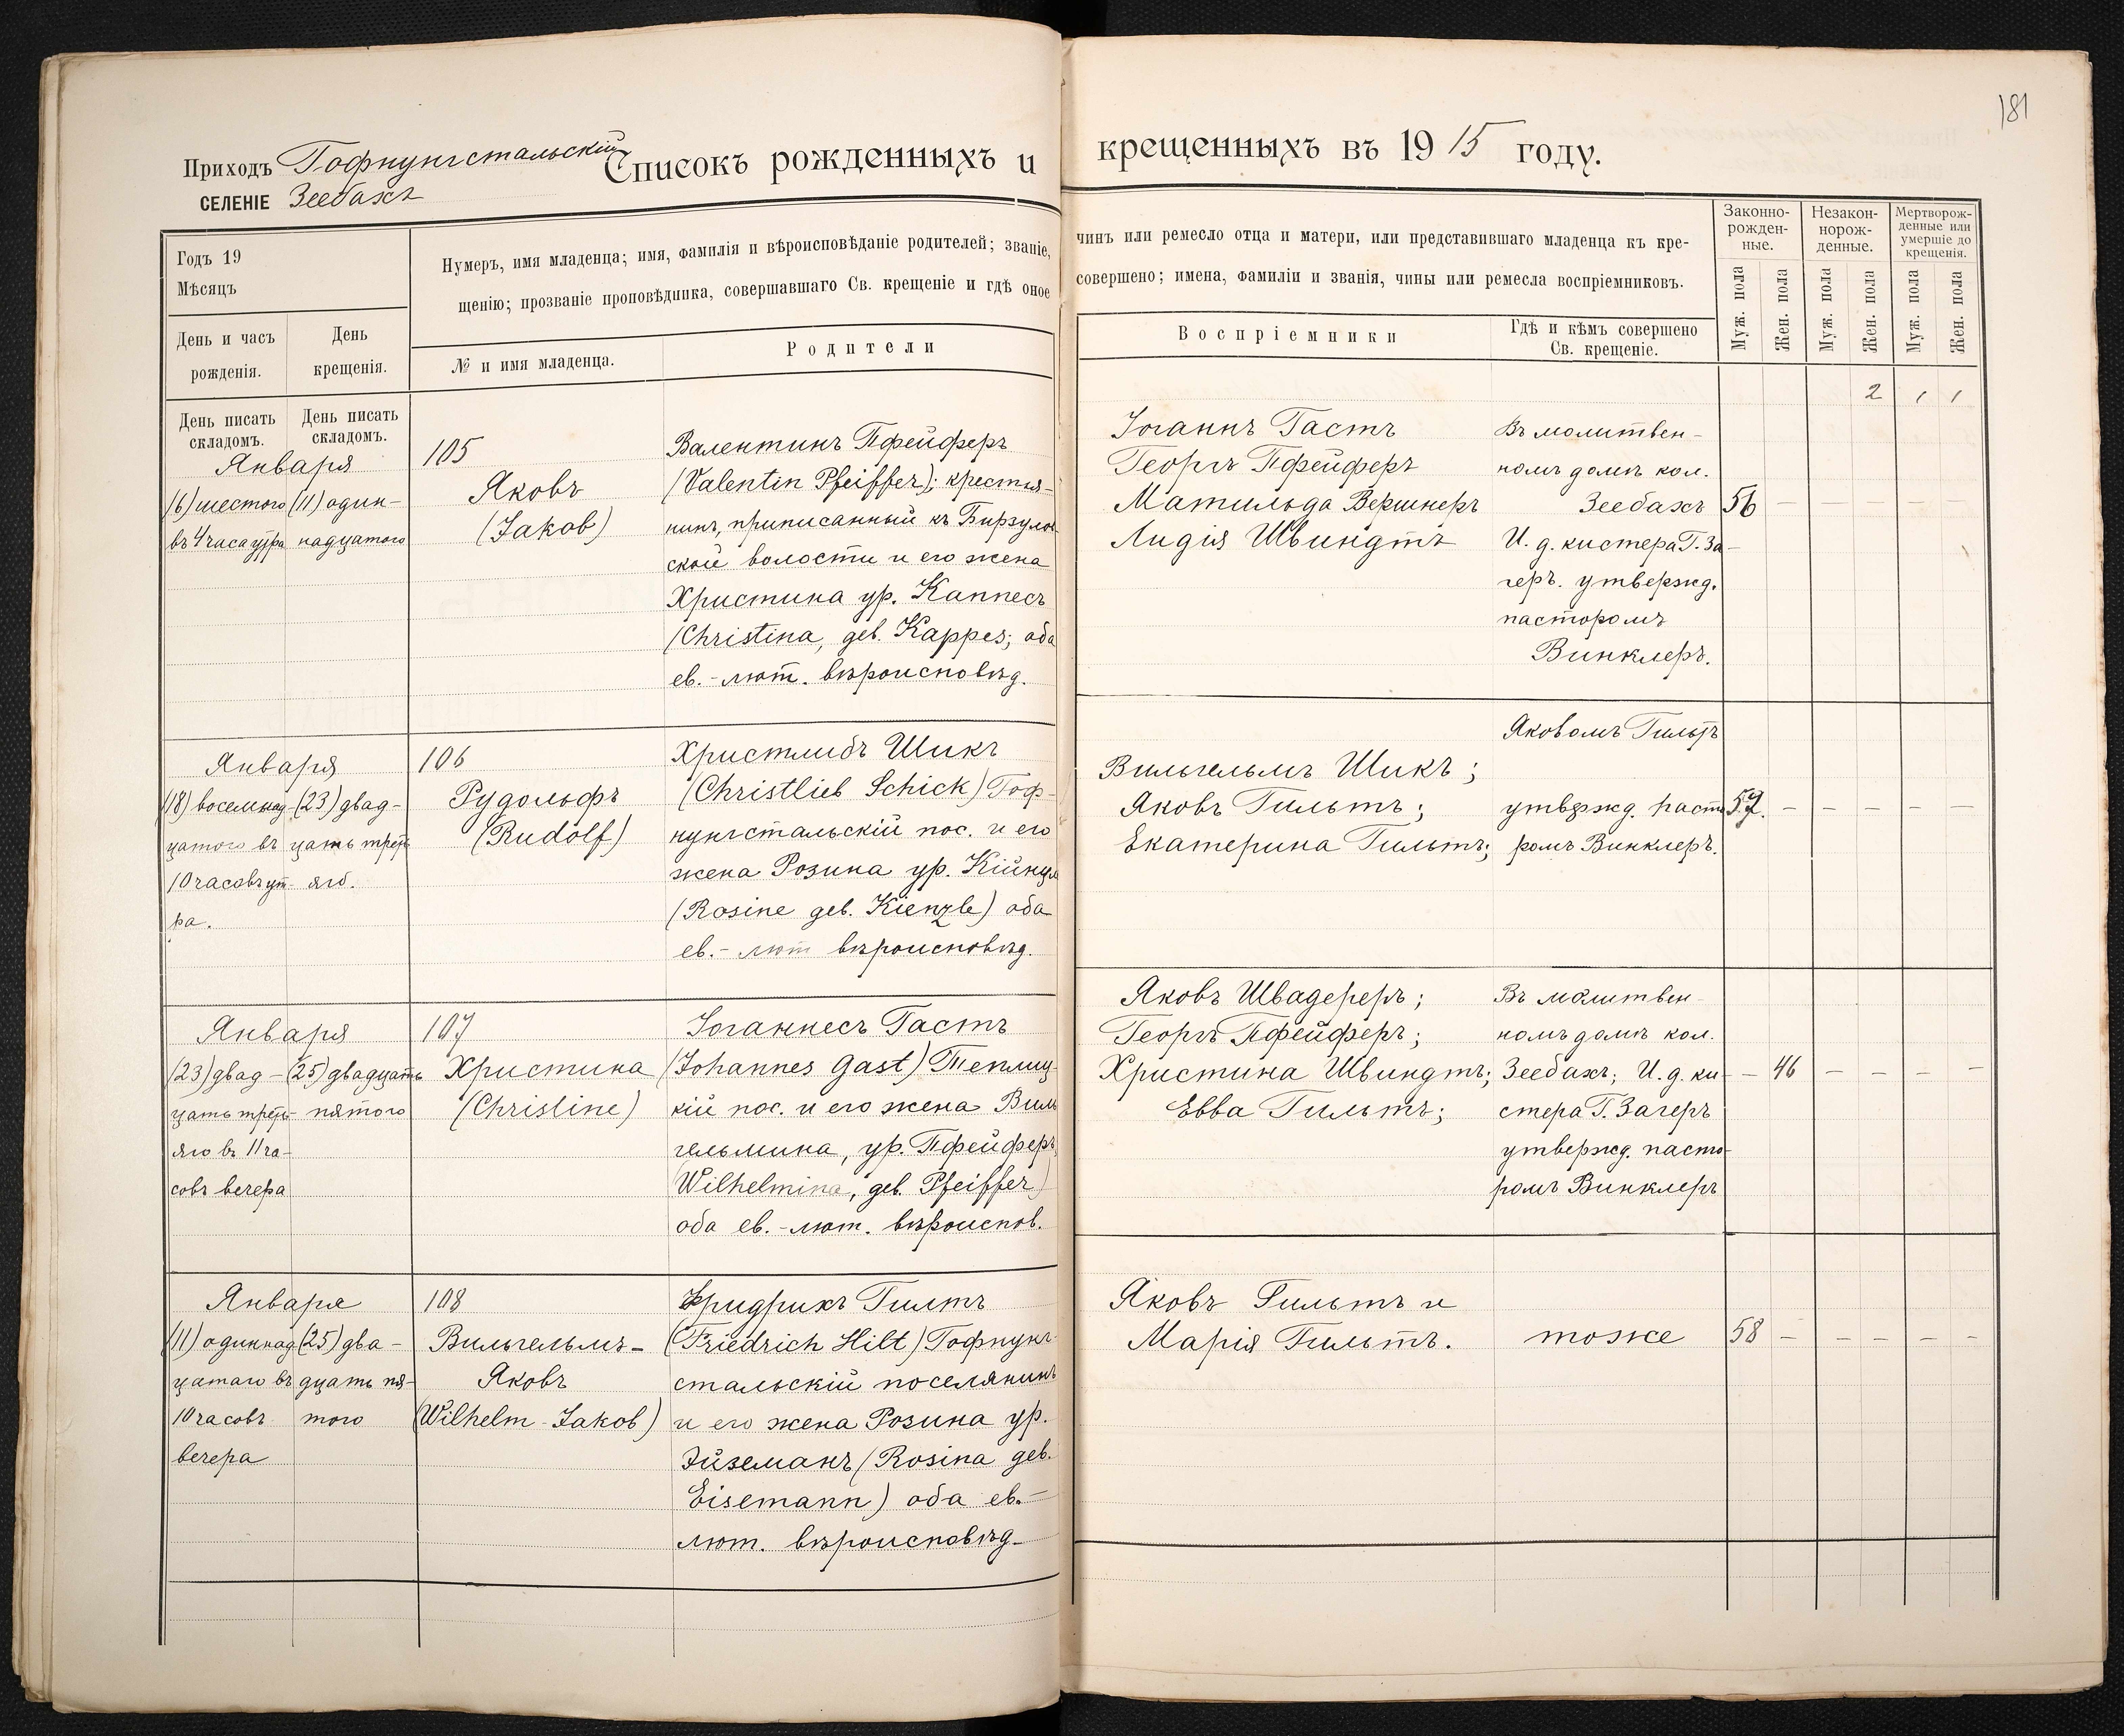 181
Приходъ Гофнунгстальскій
СЕЛЕНІЕ Зеебахъ
Списокъ рожденныхъ и крещенныхъ въ 1915 году.
Годъ 19
Мѣсяцъ
День и часъ рожденія.
День крещенія.
Нумеръ, имя младенца; имя, фамилія и вѣроисповѣданіе родителей; званіе, чинъ или ремесло отца и матери, или представившаго младенца къ кре-
щенію; прозваніе проповѣдника, совершавшаго Св. крещеніе и гдѣ оное совершено; имена, фамиліи и званія, чины или ремесла воспріемниковъ.
№ и имя младенца.
Родители
Воспріемники
Гдѣ и кѣмъ совершено
Св. крещеніе.
Законно-
рожден-
ные.
Незакон-
норож-
денные.
Мертворож-
денные или
умершіе до
крещенія.
Муж. пола
Жен. пола
Муж. пола
Жен. пола
Муж. пола
Жен. пола
2 1 1
День писать
складомъ.
День писать
складомъ.
Января
(6) шестого
въ 4 часа утра
(11) один-
надцатого
105
Яковъ
(Jakob)
Валентинъ Пфейферъ
(Valentin Pfeiffer); крестья-
нинъ, приписанный къ Бирзулов
ской волости и его жена
Христина ур. Каппесъ
(Christina, geb. Kappes; оба
ев.-лют. вѣроисповѣд.
Іоганнъ Гастъ
Георгъ Пфейферъ
Матильда Вершнеръ
Лидія Швиндтъ
Въ молитвен-
номъ домѣ кол.
Зеебахъ
И. д. кистера Г. За-
геръ. утвержд.
пасторомъ
Винклеръ.
56 – – – – –
Января
(18) восемнад-
цатого въ
10 часовъ ут-
ра.
(23) двад-
цать треть
яго.
106
Рудольфъ
(Rudolf)
Христлибъ Шикъ
(Christlieb Schick) Гоф-
нунгстальскій пос. и его
жена Розина ур. Кійнцле
(Rosine geb. Kienzle) оба
ев.-лют вѣроисповѣд.
Вильгельмъ Шикъ;
Яковъ Гильтъ;
Екатерина Гильтъ;
Яковомъ Гильтъ
утвержд. пасто
ромъ Винклеръ.
57. – – – – –
Января
(23) двад-
цать треть-
яго въ 11 ча-
совъ вечера
(25) двадцать
пятого
107
Христина
(Christine)
Іоганнесъ Гастъ
(Johannes Gast) Теплиц-
кій пос. и его жена Виль
гельмина, ур. Пфейферъ
(Wilhelmina, geb. Pfeiffer)
оба ев.-лют. вѣроиспов.
Яковъ Швадереръ;
Георгъ Пфейферъ;
Христина Швиндтъ;
Евва Гильтъ;
Въ молитвен-
номъ домѣ кол.
Зеебахъ; И. д. ки-
стера Г. Загеръ
утвержд. пасто-
ромъ Винклеръ
– 46 – – – –
Января
(11) одиннад
цатаго въ
10 часовъ
вечера
(25) два-
дцать пя-
того
108
Вильгельмъ-
Яковъ
(Wilhelm-Jakob)
Фридрихъ Гилтъ
(Friedrich Hilt) Гофнунг-
стальскій поселянинъ
и его жена Розина ур.
Эйземанъ (Rosina geb.
Eisemann) оба ев.-
лют. вѣроисповѣд-
Яковъ Гильтъ и
Марія Гильтъ.
тоже
58 – – – – –